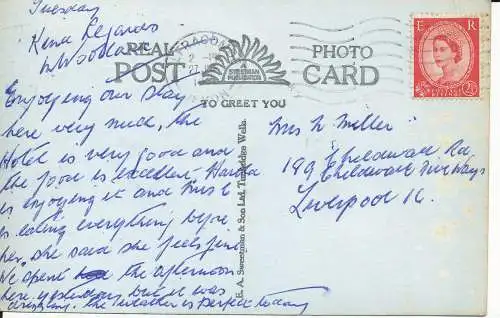 Tuesday
Kind Regards
Woollard
REAL PHOTO
POST CARD
A SWEETMAN
PUBLICATION
TO GREET YOU
E R
POSTAGE REVENUE
2½D
Enjoying our stay
here very much, the
Hotel is very good and
the food is excellent,
is enjoying it and Mrs C
is eating everything before
her, she said she feels fine
We spent the afternoon
here yesterday but it was
drizzling. The weather is perfect today
E. A. Sweetman & Son Ltd, Tunbridge Wells.
Mrs N Miller
189 Childwall Rd,
Childwall Five Ways
Liverpool 16.